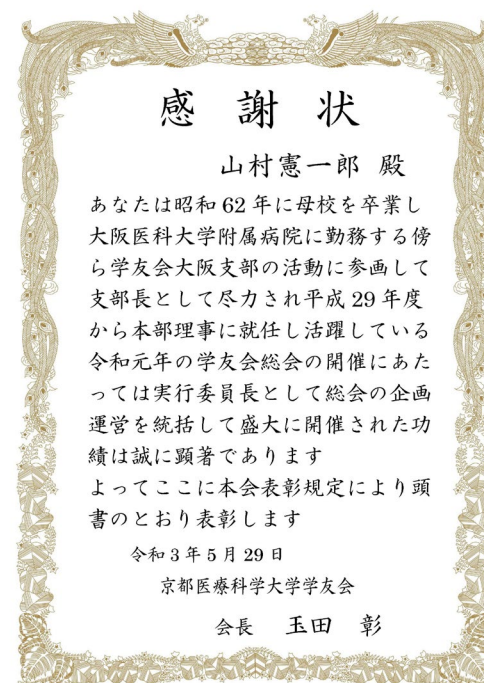 感謝状
山村憲一郎 殿
あなたは昭和 62 年に母校を卒業し
大阪医科大学附属病院に勤務する傍
ら学友会大阪支部の活動に参画して
支部長として尽力され平成 29 年度
から本部理事に就任し活躍している
令和元年の学友会総会の開催にあた
っては実行委員長として総会の企画
運営を統括して盛大に開催された功
績は誠に顕著であります
よってここに本会表彰規定により頭
書のとおり表彰します
令和 3 年 5 月 29 日
京都医療科学大学学友会
会長 玉田 彰